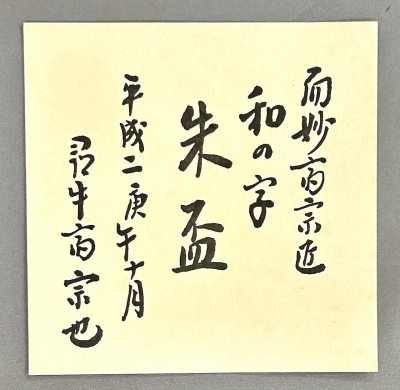 而妙斎宗匠
和の字
朱盃
平成二庚午十月
尋牛斎宗也